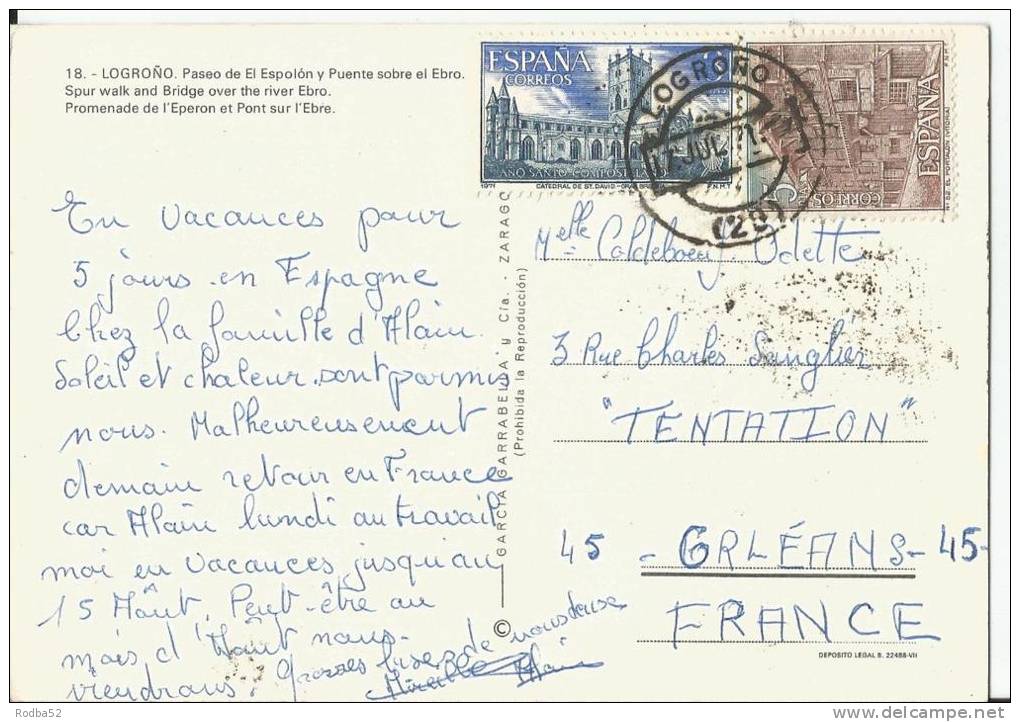 18. - LOGROÑO. Paseo de El Espolón y Puente sobre el Ebro.
Spur walk and Bridge over the river Ebro.
Promenade de l'Eperon et Pont sur l'Ebre.
ESPAÑA
CORREOS
AÑO SANTO COMPOSTELANO
1971 CATEDRAL DE ST. DAVID - GRAN BRETAÑA F.N.M.T
ESPAÑA
CORREOS
5
LOGROÑO
JUL. 71
(28)
En Vacances pour
5 jours en Espagne
Chez la famille d'Alain
Soleil et chaleur sont parmis
nous. Malheureusement
demain retour en France
car Alain lundi au travail
moi en vacances jusqu'au
15 Août, Peut-être au
mois d'Août nous
viendrons. Grosses bises de nous deux
Mireille Alain
GARCIA GARRABELLA y Cía. - ZARAGO
(Prohibida la Reproducción)
©
Melle Odette
3 Rue Charles Sanglier
"TENTATION"
45 - ORLÉANS - 45-
FRANCE
DEPOSITO LEGAL B. 22488-VII
Rodba52